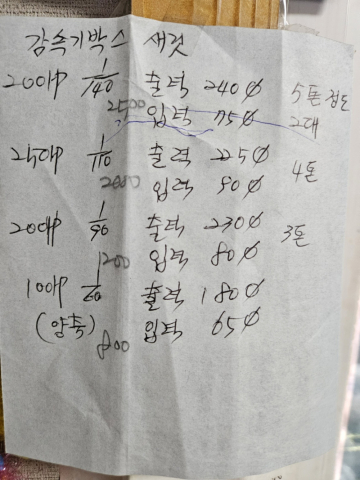 감속기박스 새것
200HP 1/140 출력 240Φ 5톤정도
2500 입력 75Φ 2대
250HP 1/110 출력 225Φ 4톤
2000 입력 90Φ
200HP 1/90 출력 230Φ 3톤
1200 입력 80Φ
100HP 1/60 출력 180Φ
(양축) 800 입력 65Φ